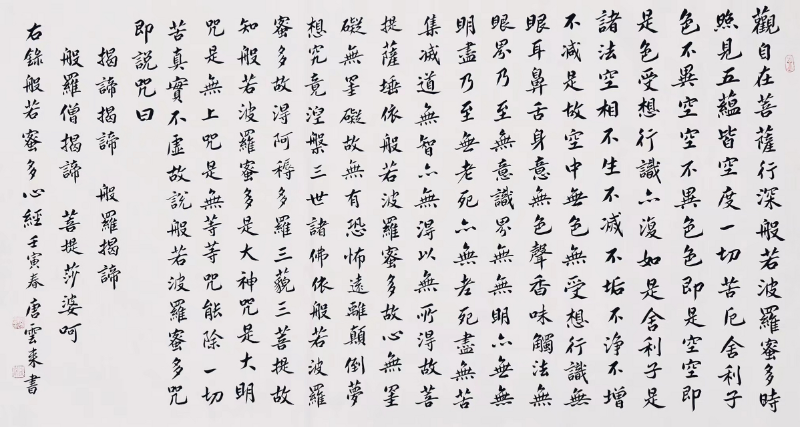 觀自在菩薩行深般若波羅蜜多時
照見五蘊皆空度一切苦厄舍利子
色不異空空不異色色即是空空即
是色受想行識亦復如是舍利子是
諸法空相不生不滅不垢不淨不增
不減是故空中無色無受想行識無
眼耳鼻舌身意無色聲香味觸法無
眼界乃至無意識界無無明亦無無
明盡乃至無老死亦無老死盡無苦
集滅道無智亦無得以無所得故菩
提薩埵依般若波羅蜜多故心無罣
礙無罣礙故無有恐怖遠離顛倒夢
想究竟涅槃三世諸佛依般若波羅
蜜多故得阿耨多羅三藐三菩提故
知般若波羅蜜多是大神咒是大明
咒是無上咒是無等等咒能除一切
苦真實不虛故說般若波羅蜜多咒
即說咒曰
揭諦揭諦 般羅揭諦
般羅僧揭諦 菩提莎婆呵
右錄般若蜜多心經 壬寅春 唐雲來書